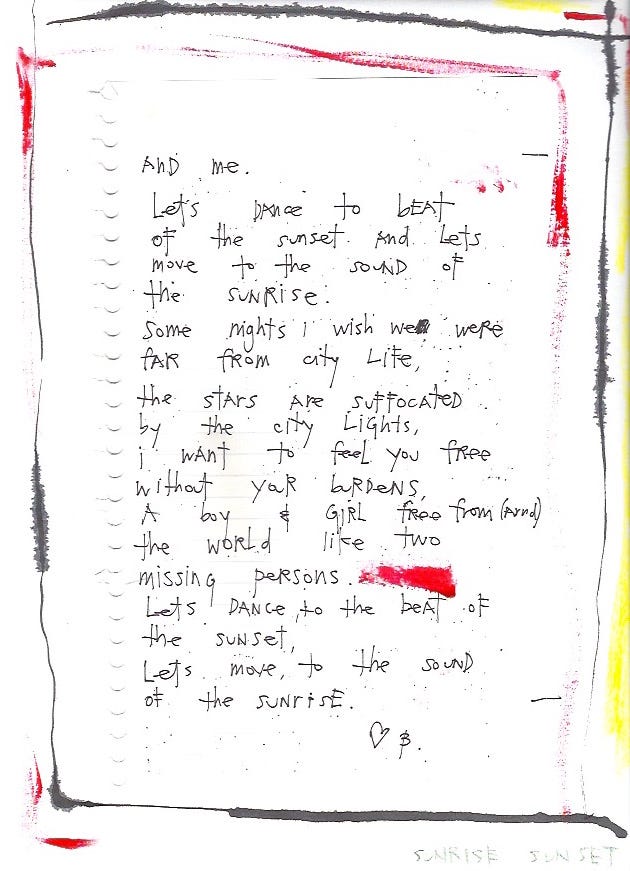 And me.
Let's DANce to bEAT
of the sunset. And Lets
move to the SOUND of
the SUNRise.
Some nights i wish we were
fAR from city Life,
the stARs ARe suffocAted
by the city Lights,
i WANt to feel you free
without your buRDeNs,
A boy & GiRL free from
the WORLd like two
missing persons.
Lets DANce, to the beAT of
the SUNset,
Lets move, to the SOUND
of the SUNrisE.
♡ B.
SUNRISE SUNSET